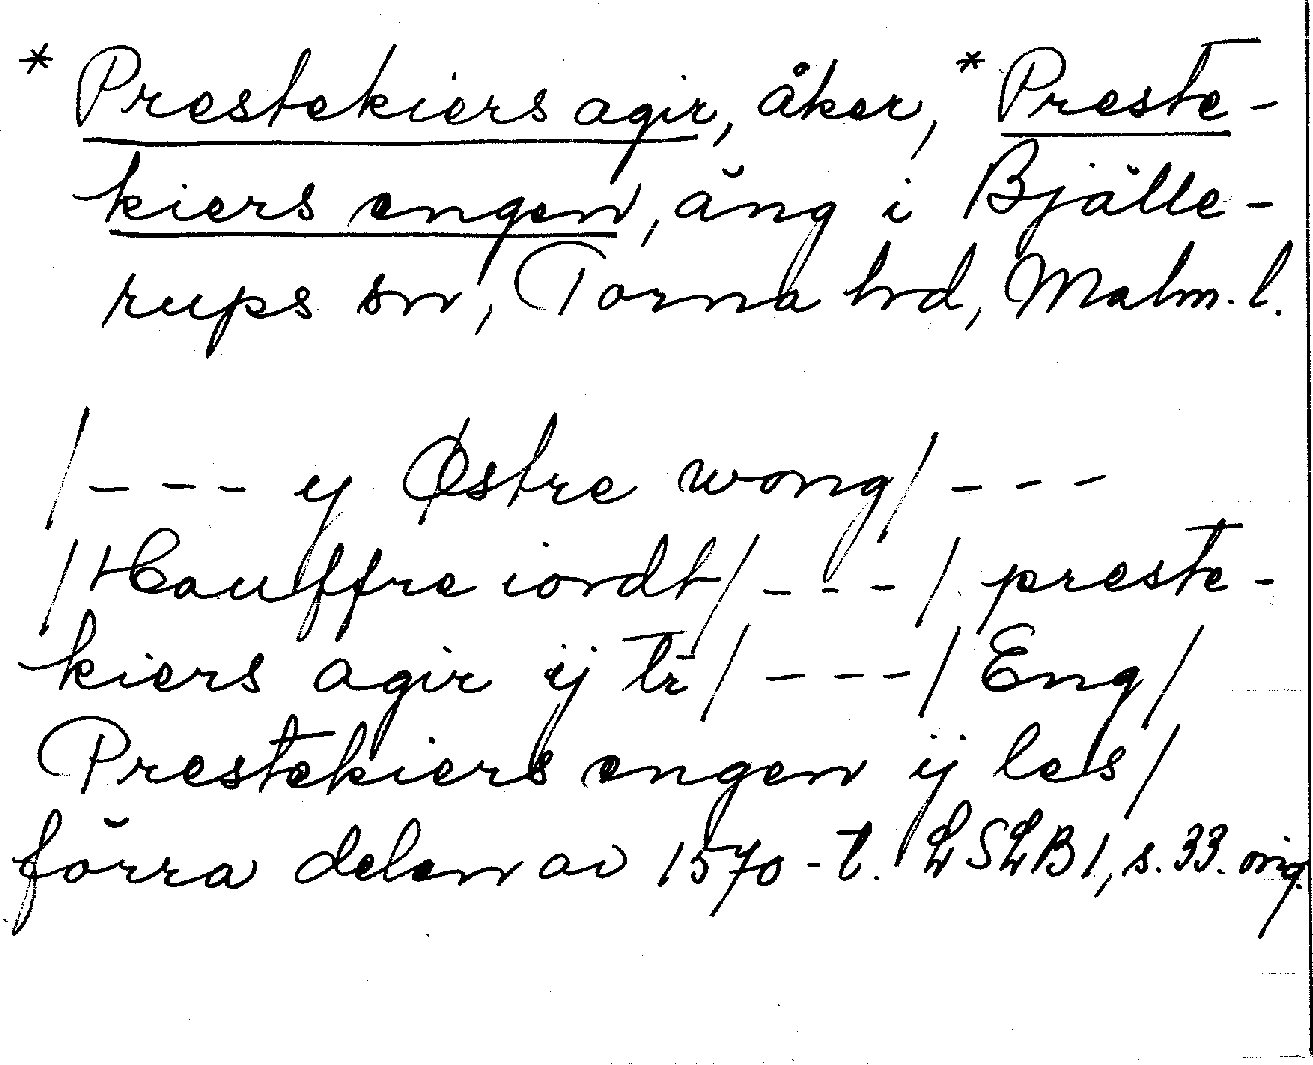 * Prestekiers agir, åker, * Preste-
kiers engen, äng i Bjälle-
rups sn, Torna hd, Malm. l.
/--- y Østre wong/ ---
/Hauffre iordt/---/ preste-
kiers agir ij tr/---/ Eng/
Prestekiers engen ij les/
förra delen av 1570-t. LSLB 1, s. 33. orig.